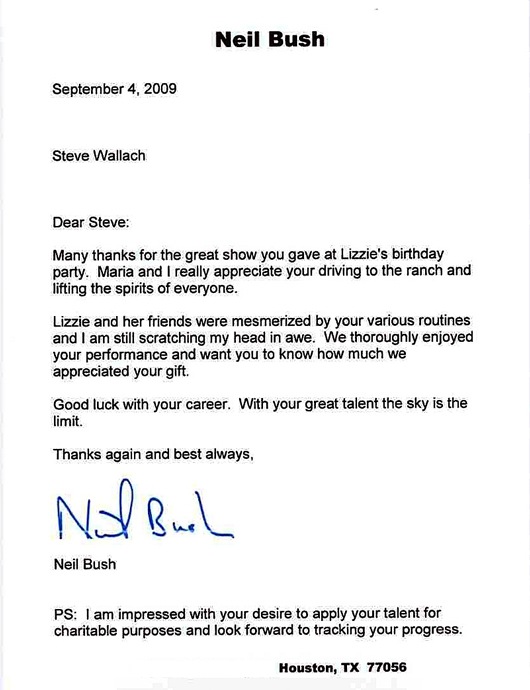 Neil Bush
September 4, 2009
Steve Wallach
Dear Steve:
Many thanks for the great show you gave at Lizzie's birthday
party.  Maria and I really appreciate your driving to the ranch and
lifting the spirits of everyone.
Lizzie and her friends were mesmerized by your various routines
and I am still scratching my head in awe.  We thoroughly enjoyed
your performance and want you to know how much we
appreciated your gift.
Good luck with your career.  With your great talent the sky is the
limit.
Thanks again and best always,
Neil Bush
Neil Bush
PS:  I am impressed with your desire to apply your talent for
charitable purposes and look forward to tracking your progress.
Houston, TX  77056